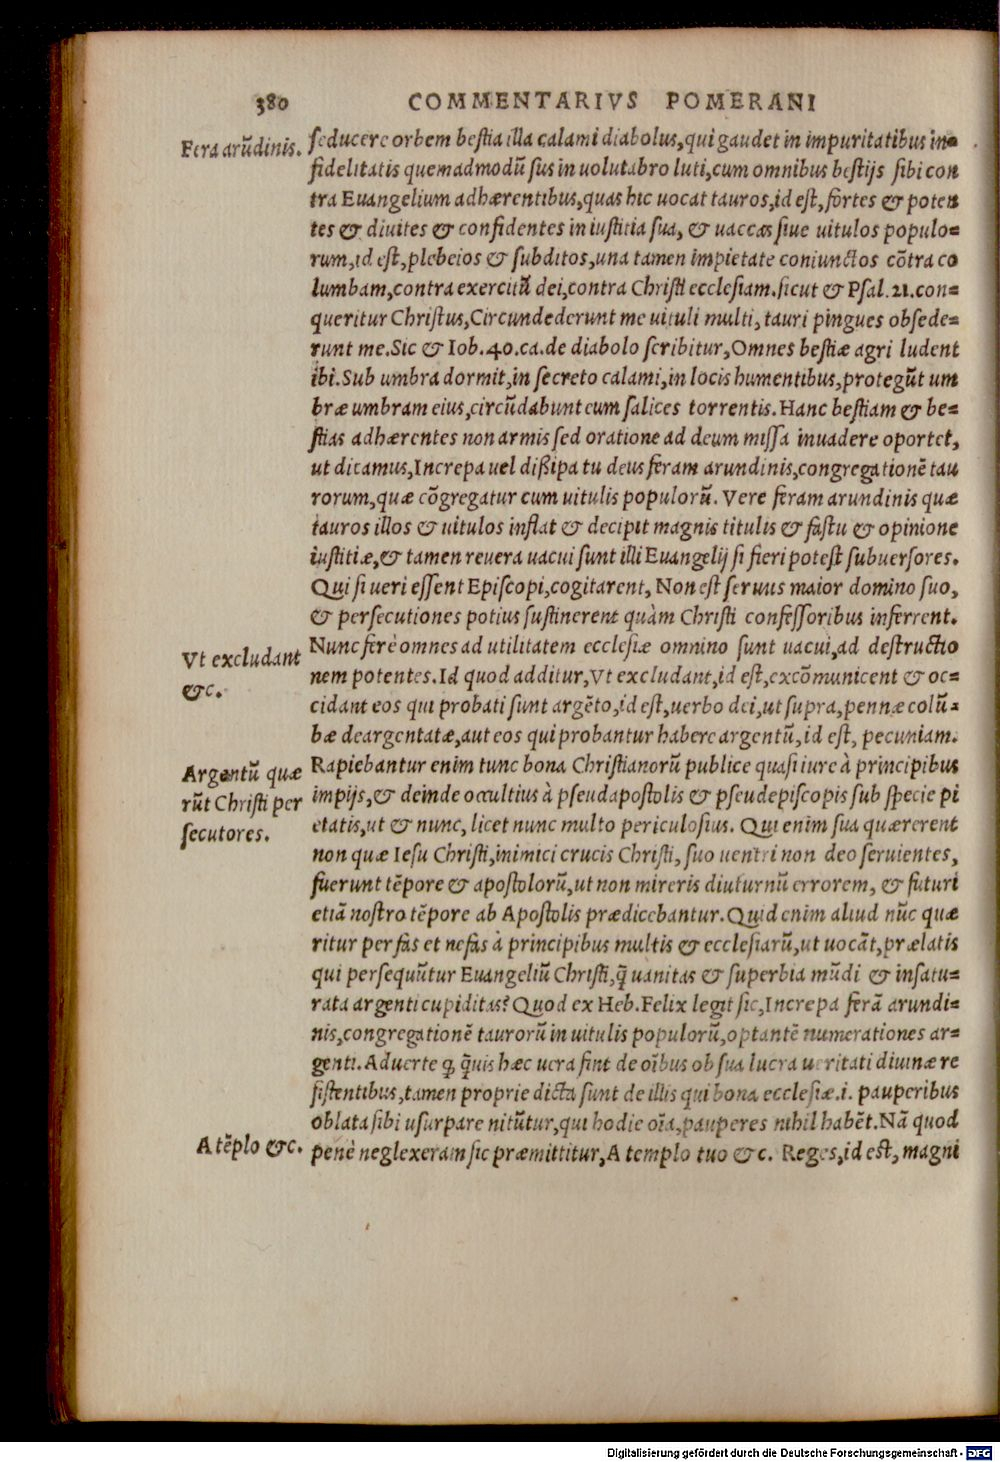 380 COMMENTARIVS POMERANI
Fera arũdinis.
seducere orbem bestia illa calami diabolus, qui gaudet in impuritatibus in=
fidelitatis quemadmodũ sus in uolutabro luti, cum omnibus bestijs sibi con
tra Euangelium adhærentibus, quas hic uocat tauros, id est, fortes & poten
tes & diuites & confidentes in iustitia sua, & uaccas siue uitulos populo=
rum, id est, plebeios & subditos, una tamen impietate coniunctos cõtra co
lumbam, contra exercitũ dei, contra Christi ecclesiam. sicut & Psal. 21. con=
queritur Christus, Circundederunt me uituli multi, tauri pingues obsede=
runt me. Sic & Iob. 40. ca. de diabolo scribitur, Omnes bestiæ agri ludent
ibi. Sub umbra dormit, in secreto calami, in locis humentibus, protegũt um
bræ umbram eius, circũdabunt eum salices torrentis. Hanc bestiam & be=
stias adhærentes non armis sed oratione ad deum missa inuadere oportet,
ut dicamus, Increpa uel dißipa tu deus feram arundinis, congregationẽ tau
rorum, quæ cõgregatur cum uitulis populorũ. Vere feram arundinis quæ
tauros illos & uitulos inflat & decipit magnis titulis & fastu & opinione
iustitiæ, & tamen reuera uacui sunt illi Euangelij si fieri potest subuersores.
Qui si ueri essent Episcopi, cogitarent, Non est seruus maior domino suo,
& persecutiones potius sustinerent quàm Christi confessoribus inferrent.
Nunc ferè omnes ad utilitatem ecclesiæ omnino sunt uacui, ad destructio
Vt excludant
&c.
nem potentes. Id quod additur, Vt excludant, id est, excõmunicent & oc=
cidant eos qui probati sunt argẽto, id est, uerbo dei, ut supra, pennæ colũ=
bæ deargentatæ, aut eos qui probantur habere argentũ, id est, pecuniam.
Argentũ quæ
rũt Christi per
secutores.
Rapiebantur enim tunc bona Christianorũ publice quasi iure à principibus
impijs, & deinde occultius à pseudapostolis & pseudepiscopis sub specie pi
etatis, ut & nunc, licet nunc multo periculosius. Qui enim sua quærerent
non quæ Iesu Christi, inimici crucis Christi, suo uentri non deo seruientes,
fuerunt tẽpore & apostolorũ, ut non mireris diuturnũ errorem, & futuri
etiã nostro tẽpore ab Apostolis prædicebantur. Quid enim aliud nũc quæ
ritur per fas et nefas à principibus multis & ecclesiarũ, ut uocãt, prælatis
qui persequũtur Euangeliũ Christi, q̃ uanitas & superbia mũdi & insatu=
rata argenti cupiditas? Quod ex Heb. Felix legit sic, Increpa ferã arundi=
nis, congregationẽ taurorũ in uitulis populorũ, optantẽ numerationes ar=
genti. Aduerte ꝙ q̃uis hæc uera sint de oĩbus ob sua lucra ueritati diuinæ re
sistentibus, tamen proprie dicta sunt de illis qui bona ecclesiæ .i. pauperibus
oblata sibi usurpare nitũtur, qui hodie oĩa, pauperes nihil habẽt. Nã quod
A tẽplo &c.
penè neglexeram sic præmittitur, A templo tuo &c. Reges, id est, magni
Digitalisierung gefördert durch die Deutsche Forschungsgemeinschaft - DFG